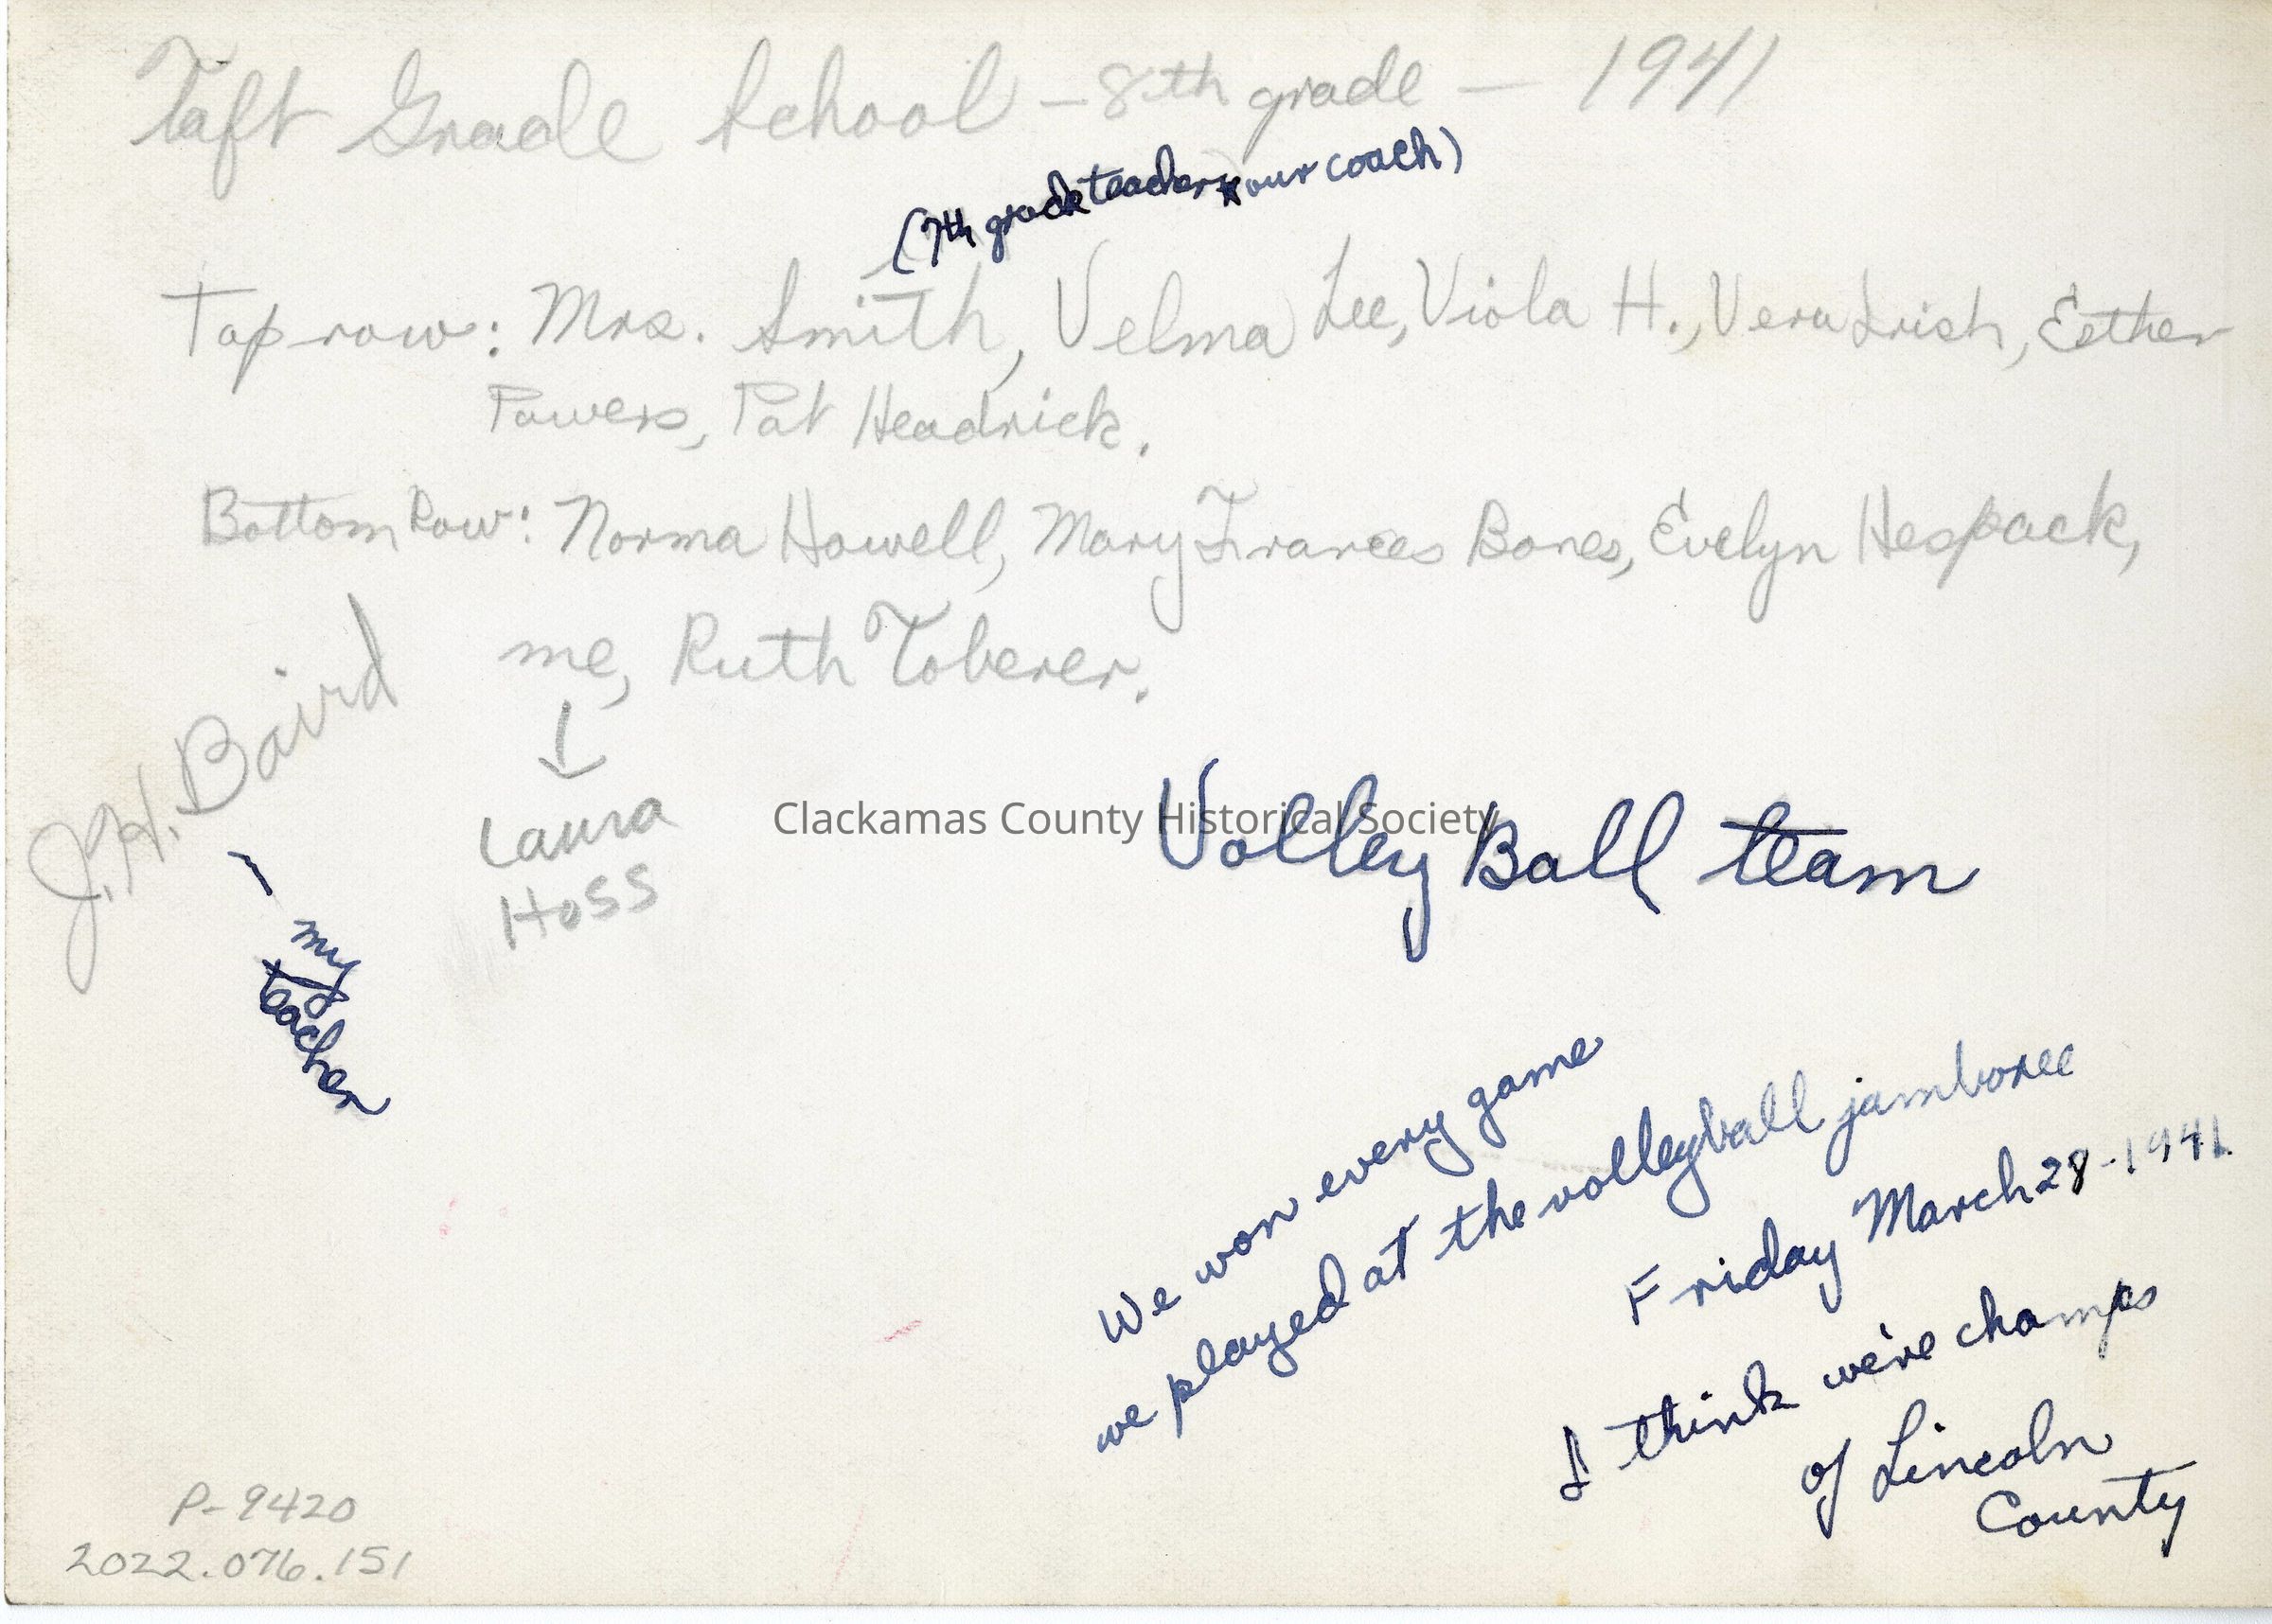 Taft Grade School - 8th grade - 1941
(7th grade teacher & our coach)
Top row: Mrs. Smith, Velma Lee, Viola H., Vera Irish, Esther
Powers, Pat Headrick.
Bottom Row: Norma Howell, Mary Frances Bones, Evelyn Hespack,
me, Ruth Toberer.
↓
Laura
Hoss
J.H. Baird
- my
teacher
Clackamas County Historical Society
Volley Ball team
We won every game
we played at the volleyball jamboree
Friday March 28-1941.
I think we're champs
of Lincoln
County
P-9420
2022.076.151